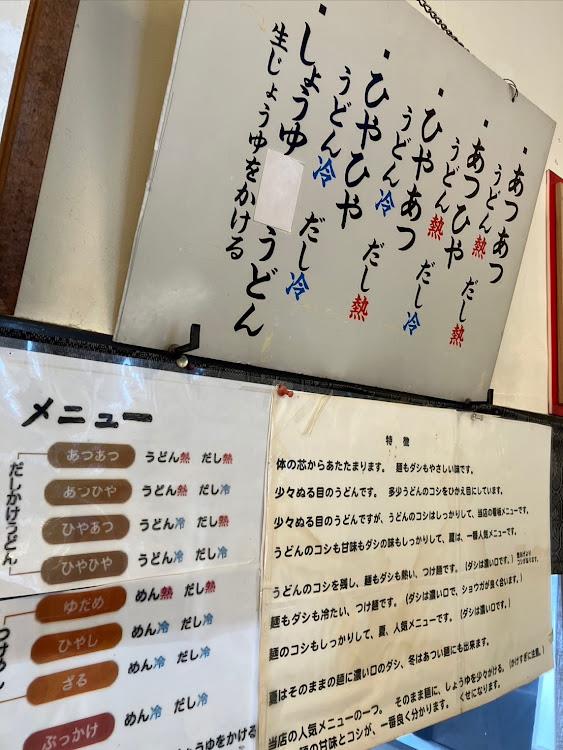 ・あつあつ
うどん熱 だし熱
・あつひや
うどん熱 だし冷
・ひやあつ
うどん冷 だし熱
・ひやひや
うどん冷 だし冷
・しょうゆうどん
生じょうゆをかける
メニュー
だしかけうどん
あつあつ うどん熱 だし熱
あつひや うどん熱 だし冷
ひやあつ うどん冷 だし熱
ひやひや うどん冷 だし冷
ゆだめ めん熱 だし熱
ひやし めん冷 だし冷
ざる めん冷 だし冷
ぶっかけ めん冷 だし冷
ょうゆをかける
特徴
体の芯からあたたまります。 麺もダシもやさしい味です。
少々ぬる目のうどんです。 多少うどんのコシをひかえ目にしています。
少々ぬる目のうどんですが、うどんのコシはしっかりして、当店の看板メニューです。
うどんのコシも甘味もダシの味もしっかりして、夏は、一番人気メニューです。
うどんのコシを残し、麺もダシも熱い、つけ麺です。(ダシは濃い口です。)
麺もダシも冷たい、つけ麺です。(ダシは濃い口で、ショウガが良く合います。)
麺のコシもしっかりして、夏、人気メニューです。(ダシは濃い口です。)
夏はそのままの麺に濃い口のダシ、冬はあつい麺にも出来ます。
当店の人気メニューの一つ。 そのまま麺に、しょうゆを少々がける。(かけすぎに注意。)
麺の甘味とコシが、一番良く分かります。 くせになります。